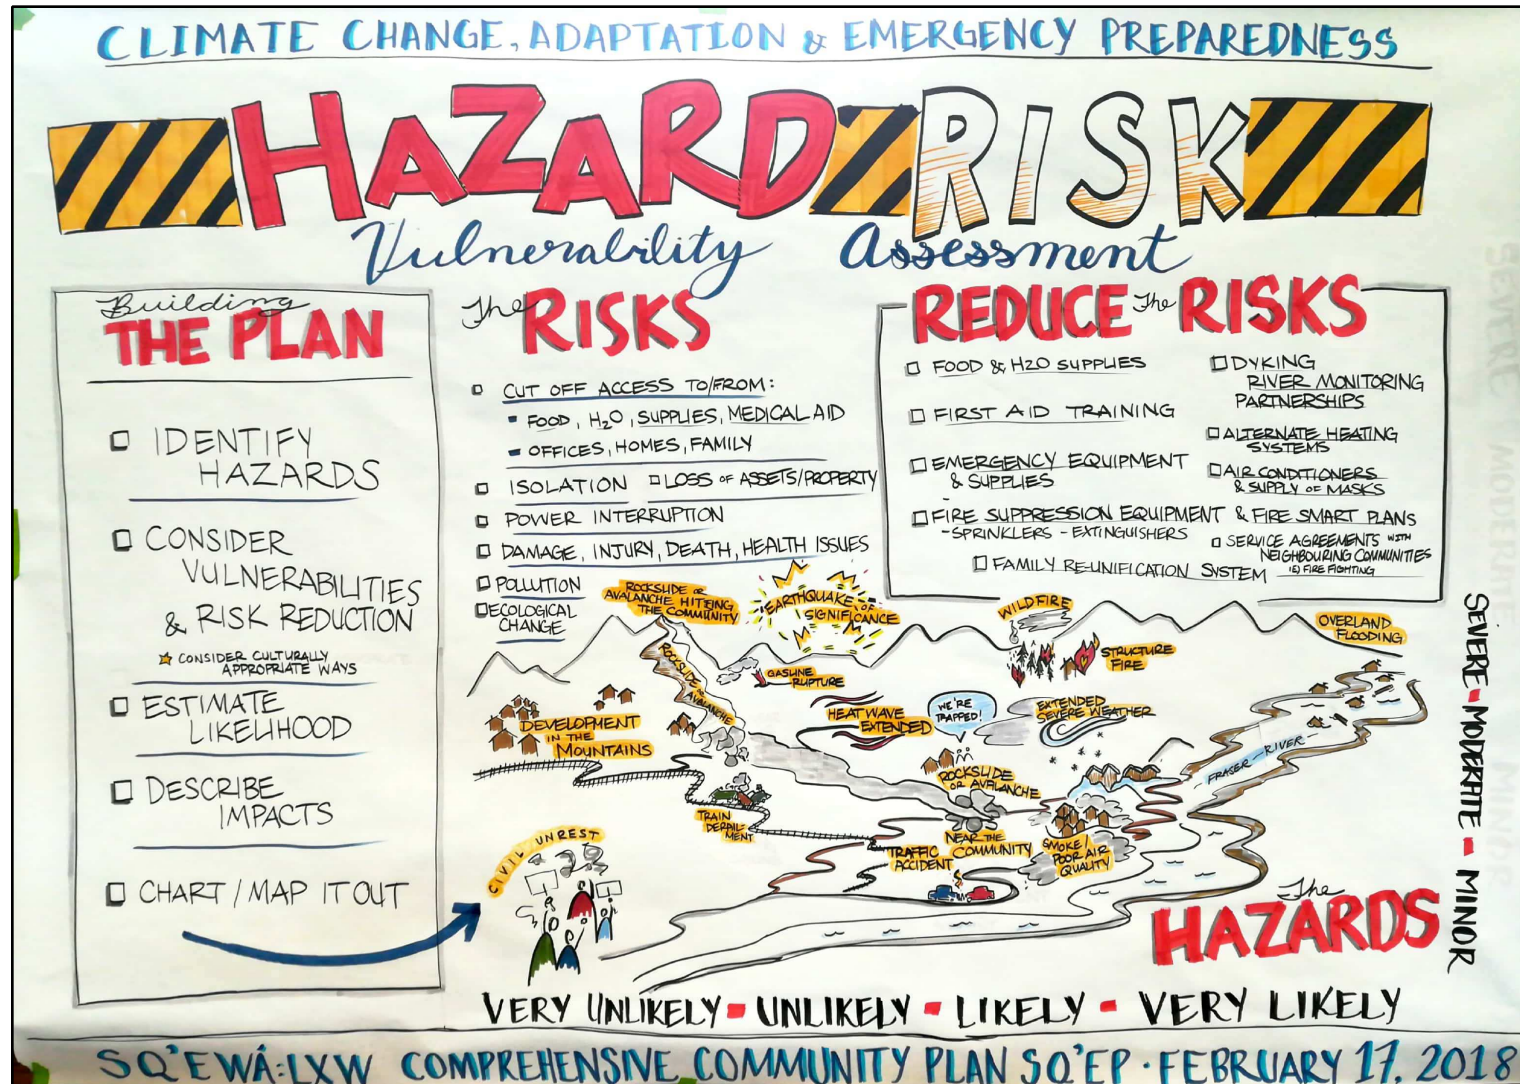 CLIMATE CHANGE, ADAPTATION & EMERGENCY PREPAREDNESS
HAZARD RISK
Vulnerability Assessment
Building
THE PLAN
☐ IDENTIFY
HAZARDS
☐ CONSIDER
VULNERABILITIES
& RISK REDUCTION
CONSIDER CULTURALLY
APPROPRIATE WAYS
☐ ESTIMATE
LIKELIHOOD
☐ DESCRIBE
IMPACTS
☐ CHART / MAP IT OUT
The RISKS
☐ CUT OFF ACCESS TO/FROM:
- FOOD, H2O, SUPPLIES, MEDICAL AID
- OFFICES, HOMES, FAMILY
☐ ISOLATION ☐ LOSS OF ASSETS/PROPERTY
☐ POWER INTERRUPTION
☐ DAMAGE, INJURY, DEATH, HEALTH ISSUES
☐ POLLUTION
☐ ECOLOGICAL
CHANGE
REDUCE The RISKS
☐ FOOD & H2O SUPPLIES
☐ FIRST AID TRAINING
☐ EMERGENCY EQUIPMENT
& SUPPLIES
☐ FIRE SUPPRESSION EQUIPMENT & FIRE SMART PLANS
- SPRINKLERS - EXTINGUISHERS
☐ FAMILY RE-UNIFICATION SYSTEM
☐ DYKING
RIVER MONITORING
PARTNERSHIPS
☐ ALTERNATE HEATING
SYSTEMS
☐ AIR CONDITIONERS
& SUPPLY OF MASKS
☐ SERVICE AGREEMENTS WITH
NEIGHBOURING COMMUNITIES
IE) FIRE FIGHTING
ROCKSLIDE OR
AVALANCHE HITEING
THE COMMUNITY
EARTHQUAKE OF
SIGNIFICANCE
WILDFIRE
OVERLAND
FLOODING
ROCKSLIDE OR
AVALANCHE
GASLINE
RUPTURE
STRUCTURE
FIRE
DEVELOPMENT
IN THE
MOUNTAINS
HEAT WAVE
EXTENDED
WE'RE
TRAPPED!
EXTENDED
SEVERE WEATHER
FRASER RIVER
ROCKSLIDE
OR AVALANCHE
NEAR THE
COMMUNITY
TRAIN
DERAIL-
MENT
TRAFFIC
ACCIDENT
SMOKE/
POOR AIR
QUALITY
CIVIL UNREST
The
HAZARDS
SEVERE - MODERATE - MINOR
VERY UNLIKELY - UNLIKELY - LIKELY - VERY LIKELY
SQ'EWÁ:LXW COMPREHENSIVE COMMUNITY PLAN SQ'EP · FEBRUARY 17, 2018